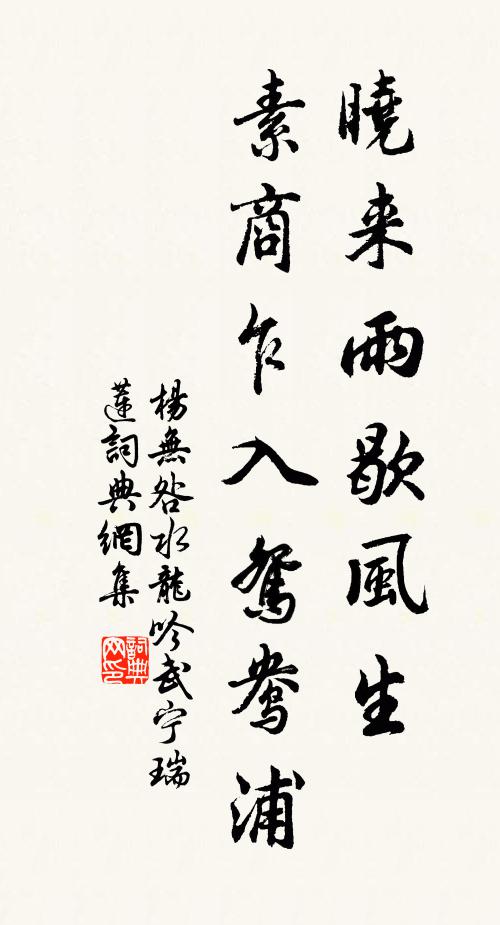 曉来雨歇風生
素商乍入鴛鴦浦
楊無咎水龍吟武宁瑞
蓮詞典網集
詞典
网印